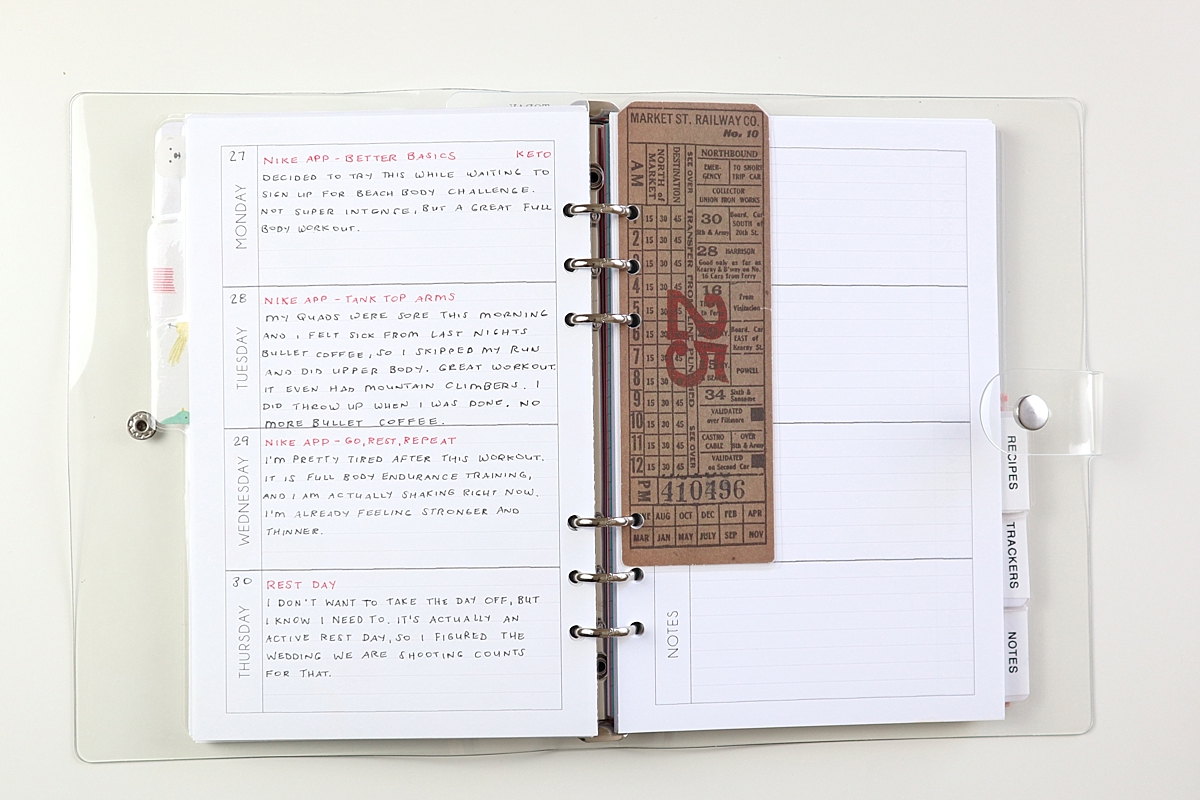 27
MONDAY
NIKE APP - BETTER BASICS KETO
DECIDED TO TRY THIS WHILE WAITING TO
SIGN UP FOR BEACH BODY CHALLENGE.
NOT SUPER INTENSE, BUT A GREAT FULL
BODY WORKOUT.
28
TUESDAY
NIKE APP - TANK TOP ARMS
MY QUADS WERE SORE THIS MORNING
AND I FELT SICK FROM LAST NIGHTS
BULLET COFFEE, SO I SKIPPED MY RUN
AND DID UPPER BODY. GREAT WORKOUT.
IT EVEN HAD MOUNTAIN CLIMBERS. I
DID THROW UP WHEN I WAS DONE. NO
MORE BULLET COFFEE.
29
WEDNESDAY
NIKE APP - GO, REST, REPEAT
I'M PRETTY TIRED AFTER THIS WORKOUT.
IT IS FULL BODY ENDURANCE TRAINING,
AND I AM ACTUALLY SHAKING RIGHT NOW.
I'M ALREADY FEELING STRONGER AND
THINNER.
30
THURSDAY
REST DAY
I DON'T WANT TO TAKE THE DAY OFF, BUT
I KNOW I NEED TO. IT'S ACTUALLY AN
ACTIVE REST DAY, SO I FIGURED THE
WEDDING WE ARE SHOOTING COUNTS
FOR THAT.
MARKET ST. RAILWAY CO.
No. 10
AM
NORTH of
MARKET
DESTINATION
SEE OVER
NORTHBOUND
EMER-
GENCY
TO SHORT
TRIP CAR
COLLECTOR
UNION IRON WORKS
30
Board. Car
SOUTH of
20th St.
28 HARRISON
Good only as far as
Kearny & B'way on No.
16 Cars from Ferry
16
From
Visitacion
Board. Car
EAST of
Kearny St.
POWELL
34
Sixth &
Sansome
VALIDATED
over Fillmore
CASTRO
CABLE
OVER
8th & Army
VALIDATED
on Second Car
25
15 30 45
2 15 30 45
15 30 45
4 15 30 45
15 30 45
6 15 30 45
7 15 30 45
8 15 30 45
9 15 30 45
10 15 30 45
11 15 30 45
12 15 30 45
SEE OVER
PM
410496
AUG OCT DEC FEB APR
MAR JAN MAY JULY SEP NOV
NOTES
RECIPES
TRACKERS
NOTES